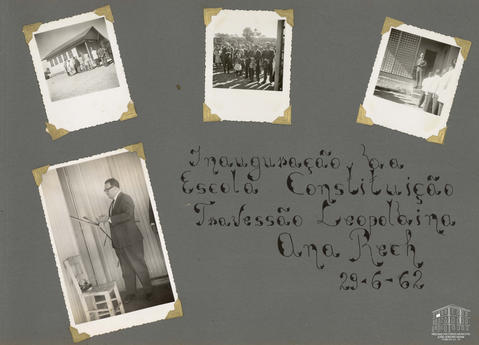 Inauguração da
Escola Constituição
Travessão Leopoldina
Ana Rech
29-6-62